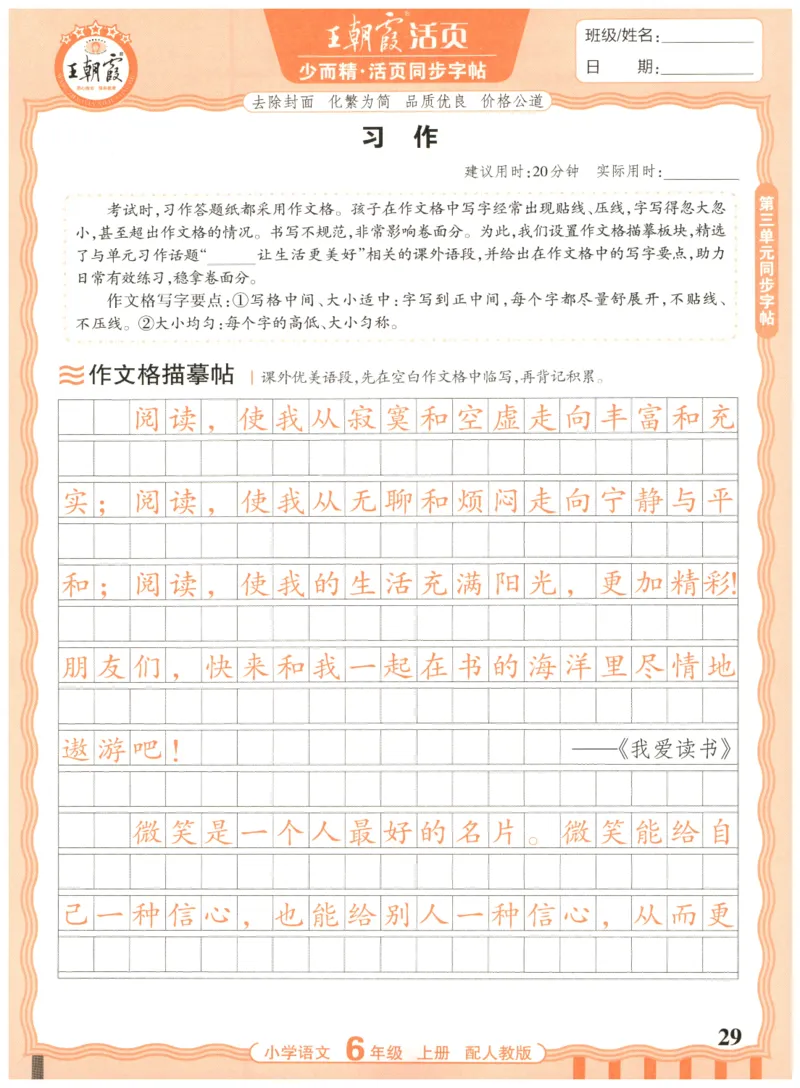 王朝霞
王朝霞活页
少而精·活页同步字帖
班级/姓名:
日 期:
去除封面 化繁为简 品质优良 价格公道
习 作
建议用时:20分钟 实际用时:
考试时,习作答题纸都采用作文格。孩子在作文格中写字经常出现贴线、压线,字写得忽大忽
小,甚至超出作文格的情况。书写不规范,非常影响卷面分。为此,我们设置作文格描摹板块,精选
了与单元习作话题“______让生活更美好”相关的课外语段,并给出在作文格中的写字要点,助力
日常有效练习,稳拿卷面分。
作文格写字要点:①写格中间、大小适中:字写到正中间,每个字都尽量舒展开,不贴线、
不压线。②大小均匀:每个字的高低、大小匀称。
第三单元同步字帖
作文格描摹帖 | 课外优美语段,先在空白作文格中临写,再背记积累。
阅读,使我从寂寞和空虚走向丰富和充
实;阅读,使我从无聊和烦闷走向宁静与平
和;阅读,使我的生活充满阳光,更加精彩!
朋友们,快来和我一起在书的海洋里尽情地
遨游吧!——《我爱读书》
微笑是一个人最好的名片。微笑能给自
己一种信心,也能给别人一种信心,从而更
29
小学语文 6年级 上册 配人教版